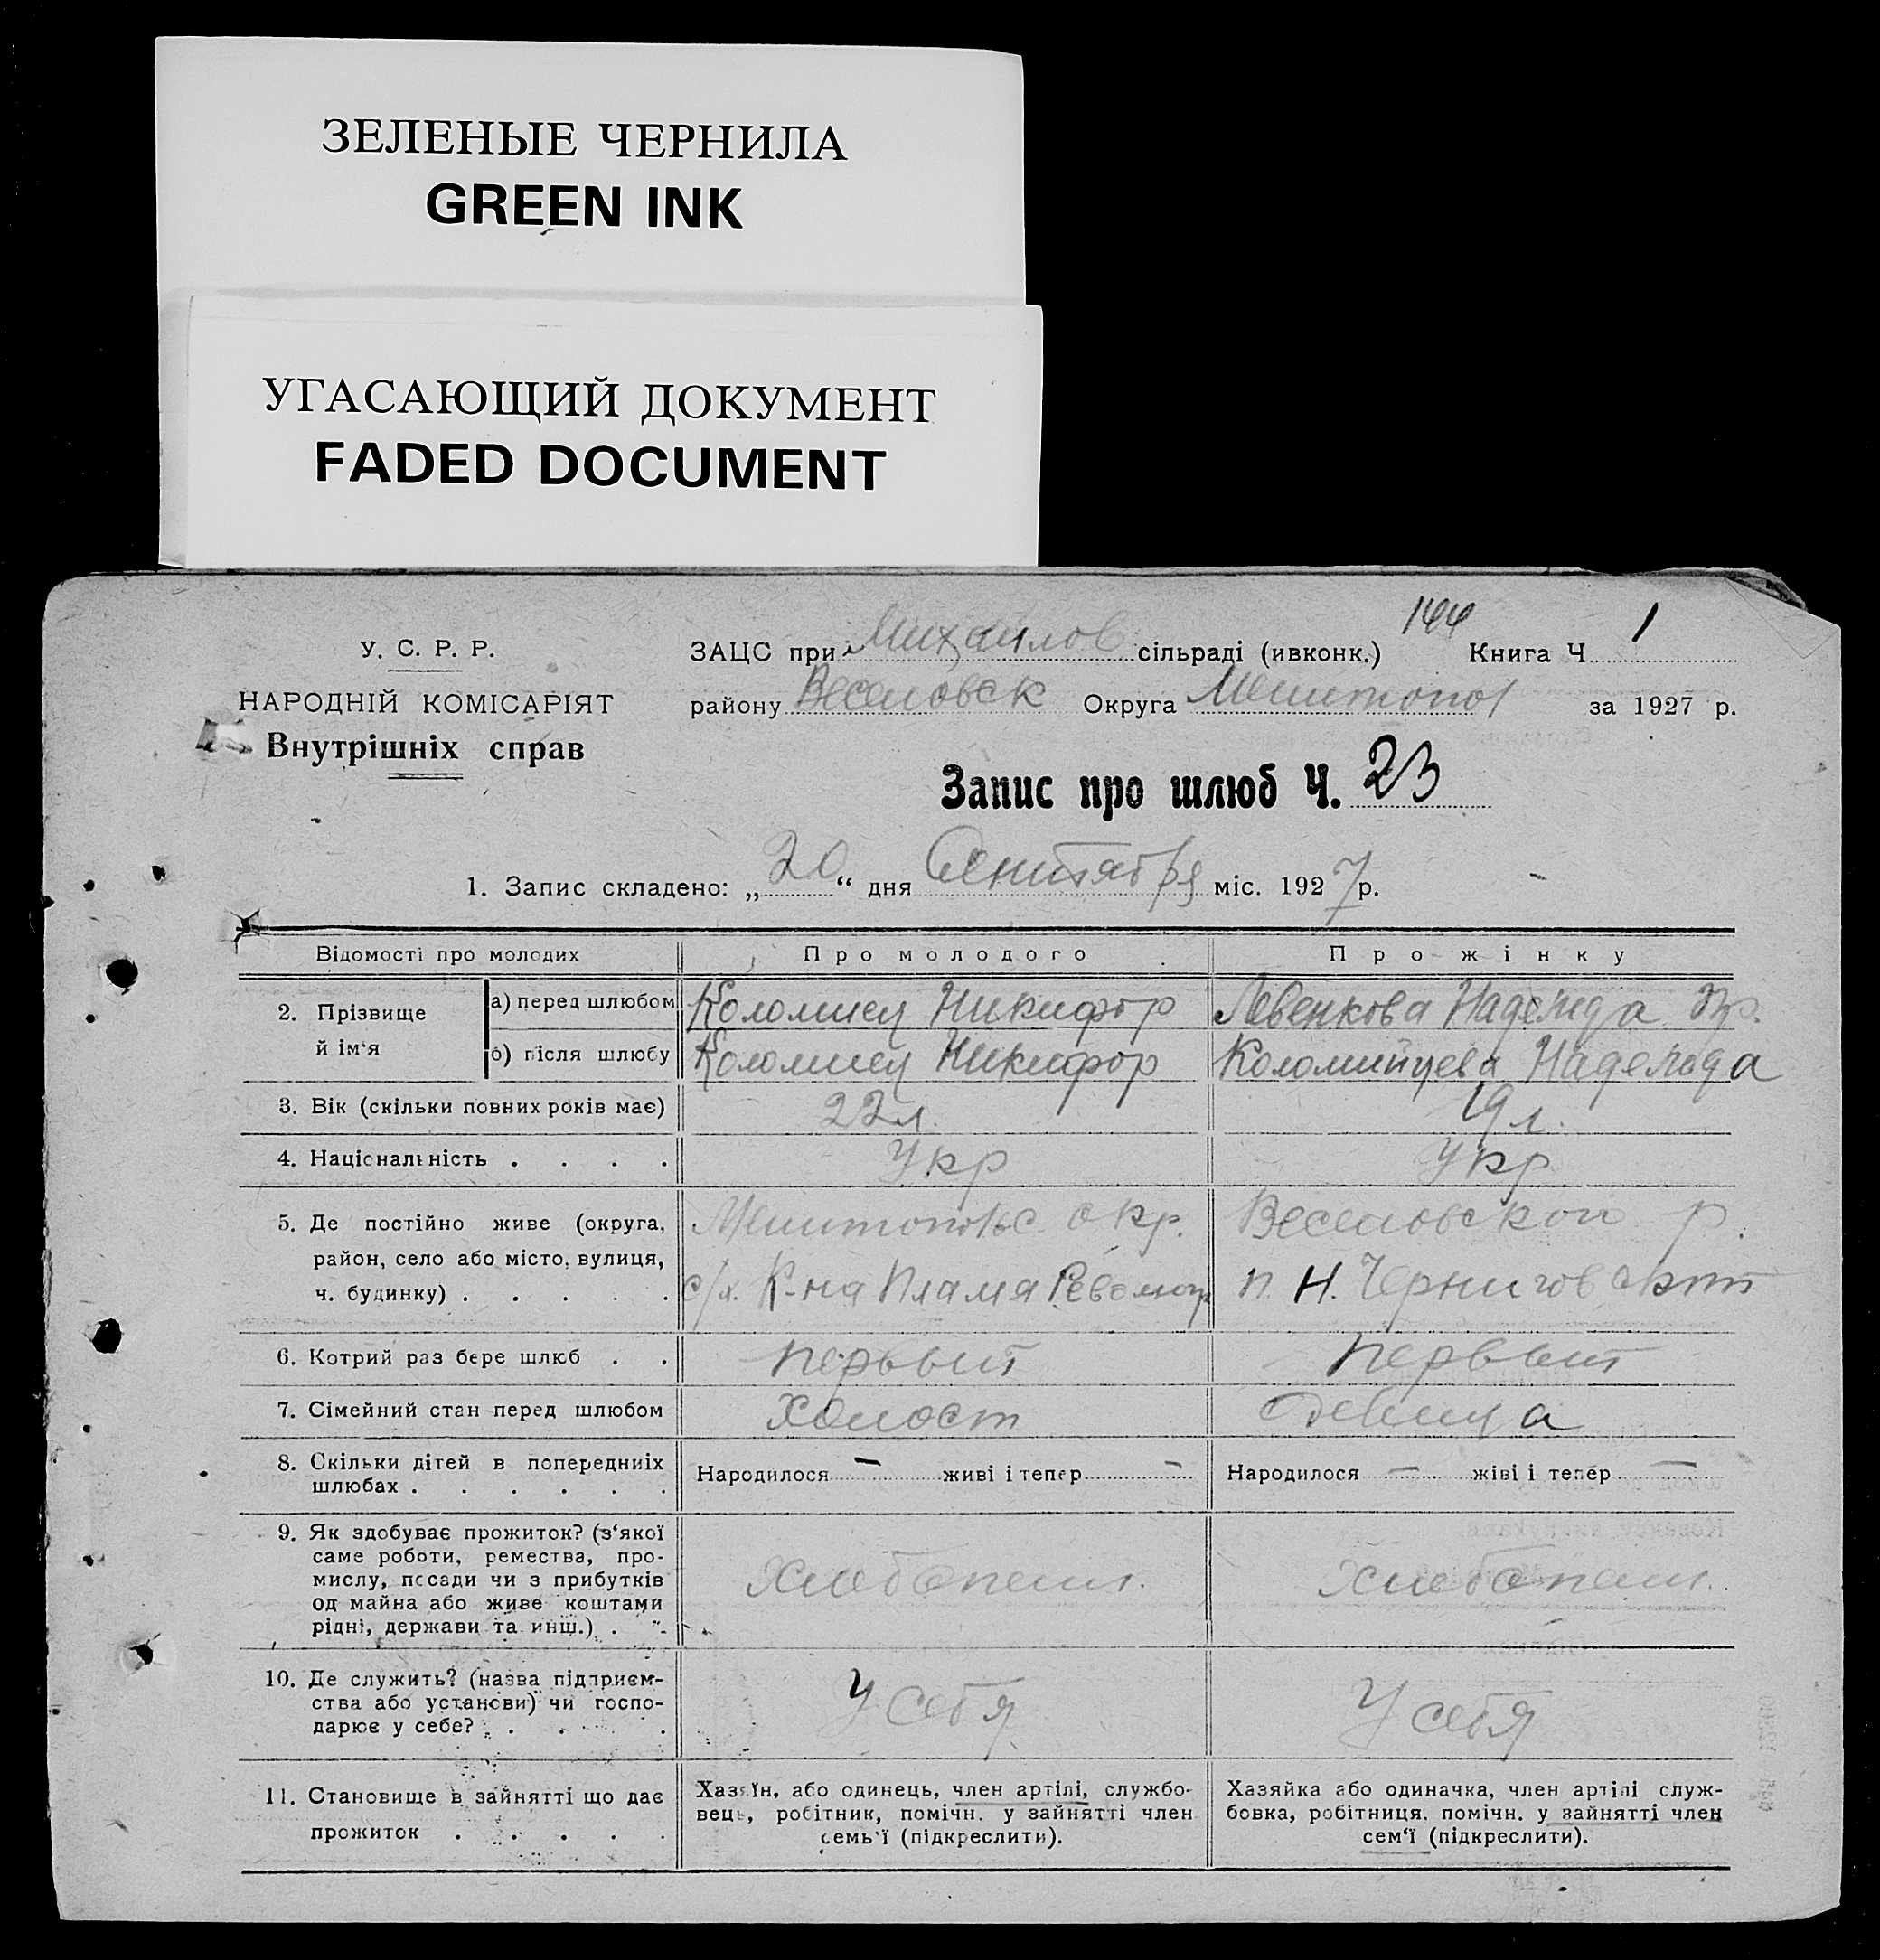 ЗЕЛЕНЫЕ ЧЕРНИЛА
GREEN INK
УГАСАЮЩИЙ ДОКУМЕНТ
FADED DOCUMENT
144
У. С. Р. Р.
ЗАЦС при Михайлов сільраді (ивконк.) Книга Ч 1
НАРОДНІЙ КОМІСАРІЯТ
району Веселовск Округа Мелитопол за 1927 р.
Внутрішніх справ
Запис про шлюб Ч. 23
1. Запис складено: „20“ дня Сентября міс. 1927 р.
Відомості про молодих Про молодого Про жінку
2. Прізвище й ім‘я
а) перед шлюбом Коломиец Никифор Левенкова Надежда
б) після шлюбу Коломиец Никифор Коломийцева Надежда
3. Вік (скільки повних років має) 22 л. 19 л.
4. Національність . . . . Укр Укр
5. Де постійно живе (округа, Мелитопольс окр. Веселовского р.
район, село або місто, вулиця,
ч. будинку) . . . . . с/х. К-на Пламя Революц п. Н. Чернигов
6. Котрий раз бере шлюб . . первый первый
7. Сімейний стан перед шлюбом холост девица
8. Скільки дітей в попередниіх
шлюбах . . . . . .
Народилося — живі і тепер —
Народилося — жіві і тепер —
9. Як здобуває прожиток? (з‘якої
саме роботи, ремества, про-
мислу, посади чи з прибутків
од майна або живе коштами
рідні, держави та инш.) .
хлебопаш. хлебопаш.
10. Де служить? (назва підприєм-
ства або установи) чи госпо-
дарює у себе? . . .
У себя У себя
11. Становище в зайнятті що дає
прожиток . . . . .
Хазяїн, або одинець, член артілі, службо-
вець, робітник, помічн. у зайнятті член
семь‘ї (підкреслити).
Хазяйка або одиначка, член артілі служ-
бовка, робітниця, помічн. у зайнятті член
сем‘ї (підкреслити).